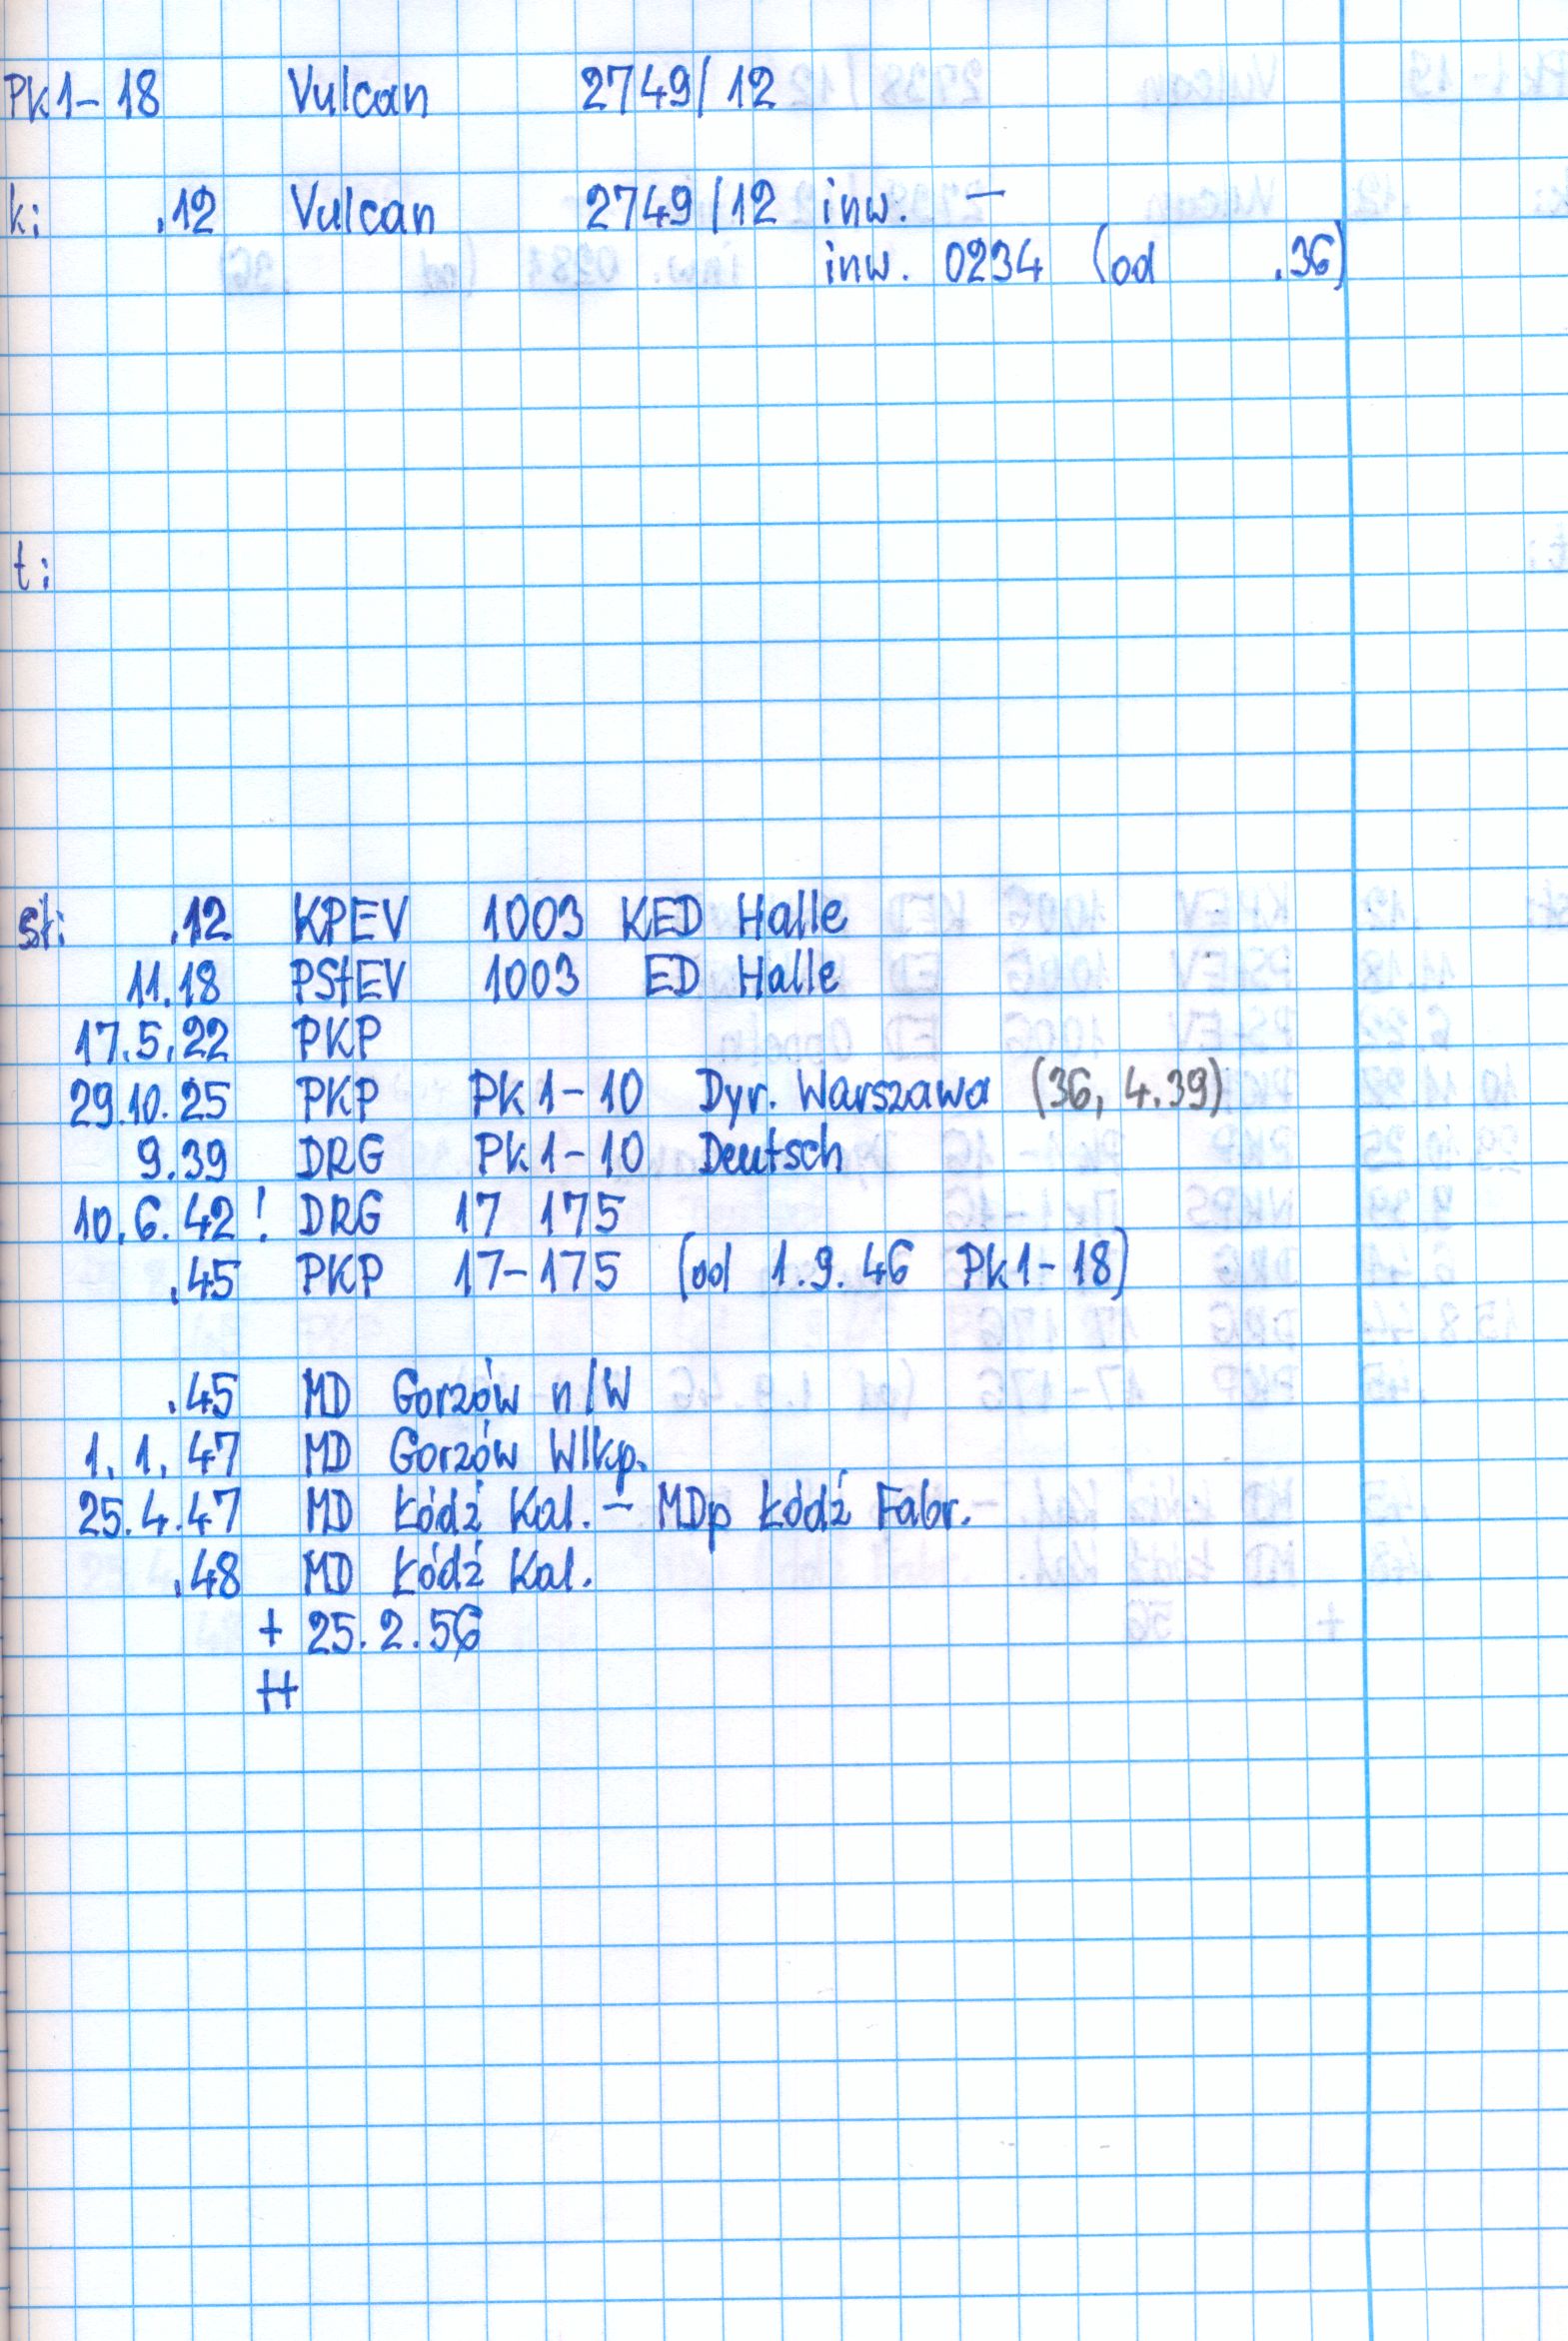 Pk1-18 Vulcan 2749/12
k: .12 Vulcan 2749/12 inw. —
inw. 0234 (od .36)
t:
st: .12 KPEV 1003 KED Halle
11.18 PStEV 1003 ED Halle
17.5.22 PKP
29.10.25 PKP Pk1-10 Dyr. Warszawa (36, 4.39)
9.39 DRG Pk1-10 Deutsch
10.6.42! DRG 17 175
.45 PKP 17-175 (od 1.9.46 Pk1-18)
.45 MD Gorzów n/W
1.1.47 MD Gorzów Wlkp.
25.4.47 MD Łódź Kal. – MDp Łódź Fabr.
.48 MD Łódź Kal.
+ 25.2.56
++